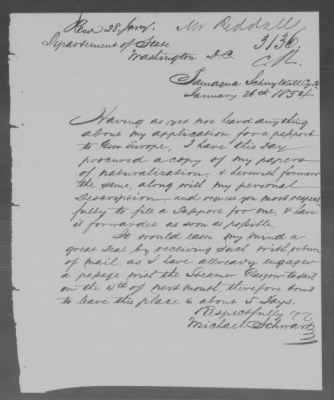 Recd 28 Jany. Mr Reddall
Departement of State 3136
Washington D.C. C.R.
Tamaqua Schuylkill Cy Pa
January 26th 1854
Having as yet not heard anything
about my application for a passport
to Europe, I have this day
procured a copy of my papers
of naturalization, & herewith forward
the same, along with my personal
description and request you most respect
fully to fill a Passport for me, & have
it forwarded as soon as possible.
It would ease my mind a
great deal by receiving such with return
of mail as I have allready engaged
a passage with the Steamer Glasgow to sail
on the 4th of next month, therefore bound
to leave this place in about 5 days.
Respectfully
Michael Schwartz